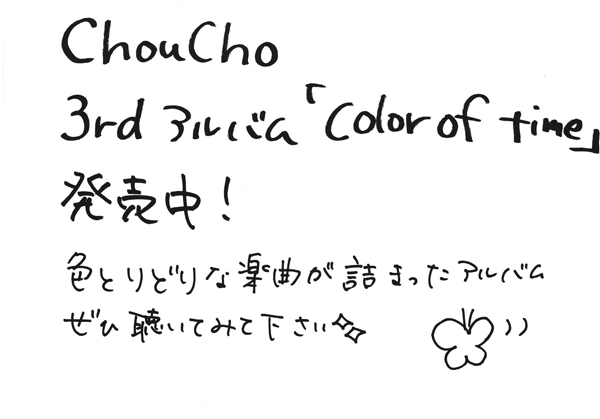 ChouCho
3rd アルバム「color of time」
発売中！
色とりどりな楽曲が詰まったアルバム
ぜひ聴いてみて下さい